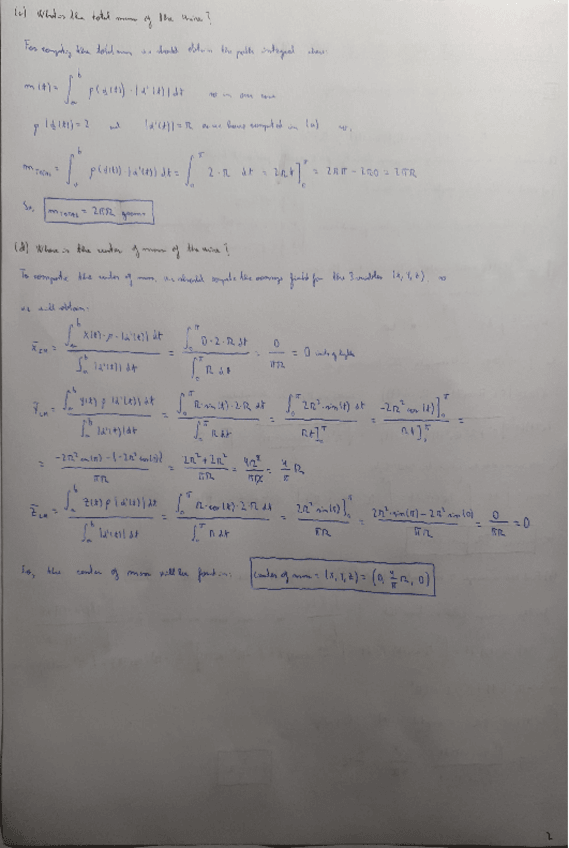 (c) What is the total mass of the wire?
For computing the total mass we should obtain the path integral where:
m(t) = ∫_a^b ρ(γ(t)) · |α'(t)| dt so in our case
ρ(γ(t)) = 2 and |α'(t)| = R as we have computed in (a) so,
m_total = ∫_a^b ρ(γ(t)) |α'(t)| dt = ∫_0^π 2 · R dt = 2Rt]_0^π = 2Rπ - 2R0 = 2πR
So, m_total = 2πR grams
(d) Where is the center of mass of the wire?
To compute the center of mass, we should compute the average for the 3 (x, y, z). so
we will obtain:
x̄_CM = ∫_a^b x(t) · ρ · |α'(t)| dt / ∫_a^b |α'(t)| dt = ∫_0^π 0 · 2 · R dt / ∫_0^π R dt = 0/πR = 0
ȳ_CM = ∫_a^b y(t) ρ |α'(t)| dt / ∫_a^b |α'(t)| dt = ∫_0^π R · sin(t) · 2 · R dt / ∫_0^π R dt = ∫_0^π 2R² · sin(t) dt / Rt]_0^π = -2R² cos(t)]_0^π / Rt]_0^π =
= -2R² cos(π) - (-2R² cos(0)) / πR = 2R² + 2R² / πR = 4R² / πR = 4/π R
z̄_CM = ∫_a^b z(t) ρ |α'(t)| dt / ∫_a^b |α'(t)| dt = ∫_0^π R · cos(t) · 2 R dt / ∫_0^π R dt = 2R² sin(t)]_0^π / πR = 2R² · sin(π) - 2R² sin(0) / πR = 0/πR = 0
So, the center of mass will be found in: center of mass = (x, y, z) = (0, 4/π R, 0)
2